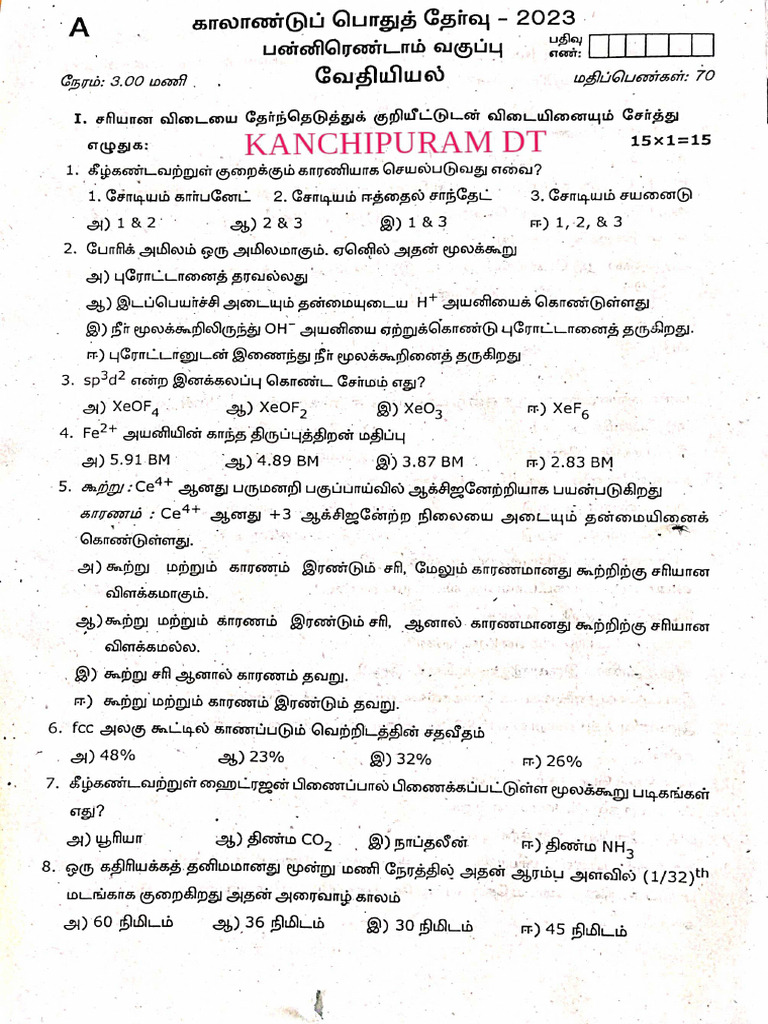 A
காலாண்டுப் பொதுத் தேர்வு - 2023
பன்னிரெண்டாம் வகுப்பு
பதிவு எண்:
நேரம்: 3.00 மணி
வேதியியல்
மதிப்பெண்கள்: 70
I. சரியான விடையை தேர்ந்தெடுத்துக் குறியீட்டுடன் விடையினையும் சேர்த்து
எழுதுக:
KANCHIPURAM DT
15×1=15
1. கீழ்கண்டவற்றுள் குறைக்கும் காரணியாக செயல்படுவது எவை?
1. சோடியம் கார்பனேட் 2. சோடியம் ஈத்தைல் சாந்தேட் 3. சோடியம் சயனைடு
அ) 1 & 2 ஆ) 2 & 3 இ) 1 & 3 ஈ) 1, 2, & 3
2. போரிக் அமிலம் ஒரு அமிலமாகும். ஏனெில் அதன் மூலக்கூறு
அ) புரோட்டானைத் தரவல்லது
ஆ) இடப்பெயர்ச்சி அடையும் தன்மையுடைய H⁺ அயனியைக் கொண்டுள்ளது
இ) நீர் மூலக்கூறிலிருந்து OH⁻ அயனியை ஏற்றுக்கொண்டு புரோட்டானைத் தருகிறது.
ஈ) புரோட்டானுடன் இணைந்து நீர் மூலக்கூறினைத் தருகிறது
3. sp³d² என்ற இனக்கலப்பு கொண்ட சேர்மம் எது?
அ) XeOF₄ ஆ) XeOF₂ இ) XeO₃ ஈ) XeF₆
4. Fe²⁺ அயனியின் காந்த திருப்புத்திறன் மதிப்பு
அ) 5.91 BM ஆ) 4.89 BM இ) 3.87 BM ஈ) 2.83 BM
5. கூற்று : Ce⁴⁺ ஆனது பருமனறி பகுப்பாய்வில் ஆக்சிஜனேற்றியாக பயன்படுகிறது
காரணம் : Ce⁴⁺ ஆனது +3 ஆக்சிஜனேற்ற நிலையை அடையும் தன்மையினைக்
கொண்டுள்ளது.
அ) கூற்று மற்றும் காரணம் இரண்டும் சரி, மேலும் காரணமானது கூற்றிற்கு சரியான
விளக்கமாகும்.
ஆ) கூற்று மற்றும் காரணம் இரண்டும் சரி, ஆனால் காரணமானது கூற்றிற்கு சரியான
விளக்கமல்ல.
இ) கூற்று சரி ஆனால் காரணம் தவறு.
ஈ) கூற்று மற்றும் காரணம் இரண்டும் தவறு.
6. fcc அலகு கூட்டில் காணப்படும் வெற்றிடத்தின் சதவீதம்
அ) 48% ஆ) 23% இ) 32% ஈ) 26%
7. கீழ்கண்டவற்றுள் ஹைட்ரஜன் பிணைப்பால் பிணைக்கப்பட்டுள்ள மூலக்கூறு படிகங்கள்
எது?
அ) யூரியா ஆ) திண்ம CO₂ இ) நாப்தலீன் ஈ) திண்ம NH₃
8. ஒரு கதிரியக்கத் தனிமமானது மூன்று மணி நேரத்தில் அதன் ஆரம்ப அளவில் (1/32)ᵗʰ
மடங்காக குறைகிறது அதன் அரைவாழ் காலம்
அ) 60 நிமிடம் ஆ) 36 நிமிடம் இ) 30 நிமிடம் ஈ) 45 நிமிடம்